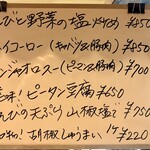 びと野菜の塩炒め ¥850
イコーロー(キャベツと豚肉) ¥850
ンジャオロース(ピーマンと豚肉) ¥700
味!ピータン豆腐 ¥650
びの天ぷら 山椒塩で ¥750
胡椒しゅうまい 1ヶ ¥220